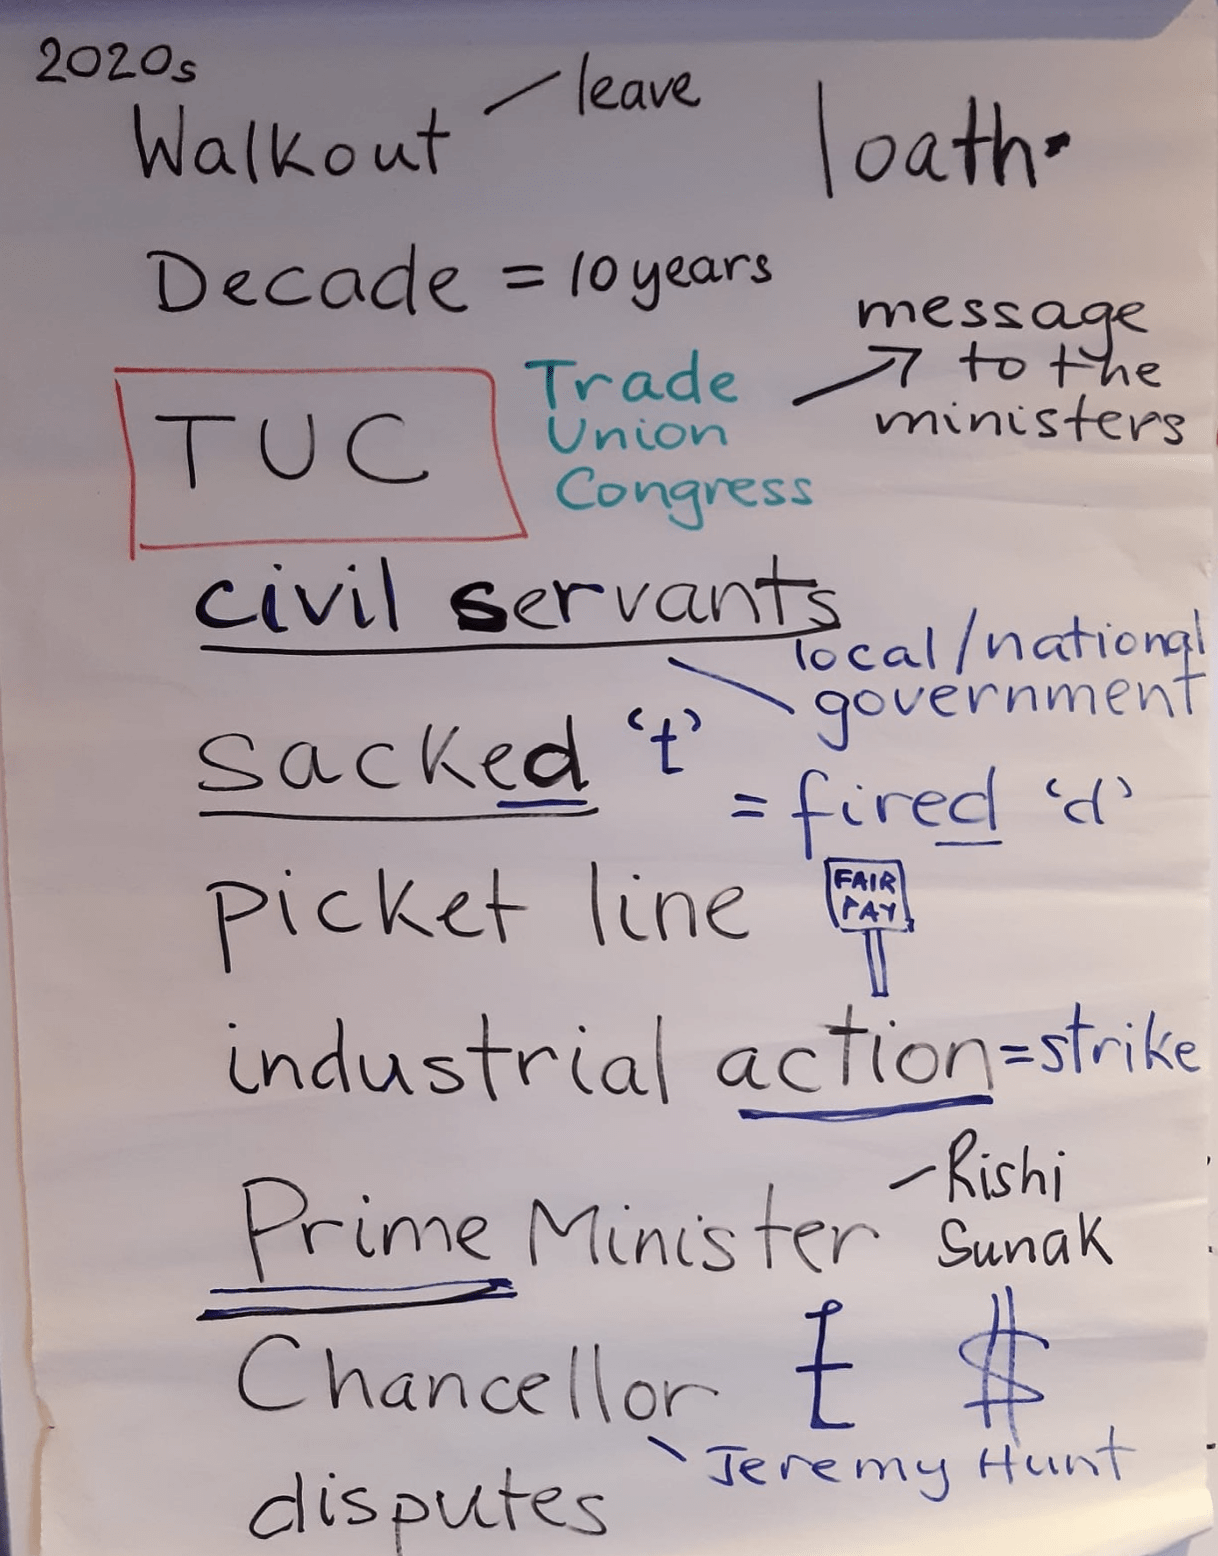 2020s
Walkout leave
loath
Decade = 10 years
TUC
Trade
Union
Congress
message
to the
ministers
civil servants
local/national
government
sacked 't'
= fired 'd'
picket line
FAIR
PAY
industrial action = strike
Prime Minister
Rishi
Sunak
Chancellor £ $
Jeremy Hunt
disputes